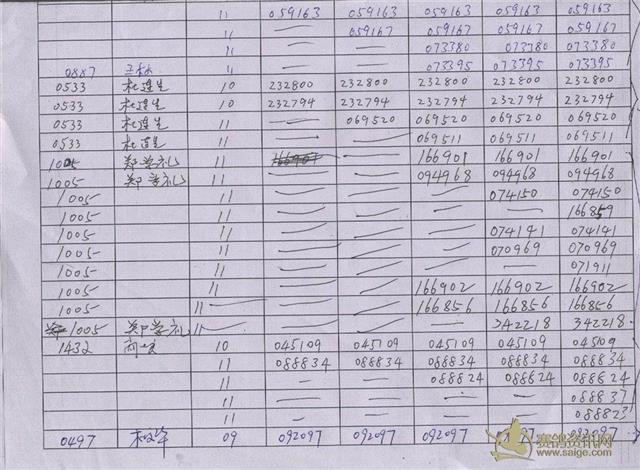 11 059163 059163 059163 059163 059163
11 — 059167 059167 059167 059167
11 — — 073380 073380 073380
0887 王林 11 — — 073395 073395 073395
0533 杜莲生 10 232800 232800 232800 232800 232800
0533 杜莲生 10 232794 232794 232794 232794 232794
0533 杜莲生 11 — 069520 069520 069520 069520
0533 杜莲生 11 — — 069511 069511 069511
1005 郑学礼 11 — 166901 166901 166901
1005 郑学礼 11 — — 094968 094968 094968
1005 11 — — — 074150 074150
1005 11 — — — — 166859
1005 11 — — — 074141 074141
1005 11 — — — 070969 070969
1005 11 — — — — 071911
1005 11 — — 166902 166902 166902
1005 11 — — 166856 166856 166856
1005 郑学礼 11 — — — 342218 342218
1432 10 045109 045109 045109 045109 04509
11 088834 088834 088834 088834 088834
11 — — 088824 088624 088624
11 — — — — 088837
11 — — — — 088823
0497 09 092097 092097 092097 092097 092097
赛鸽资讯网
www.saige.com